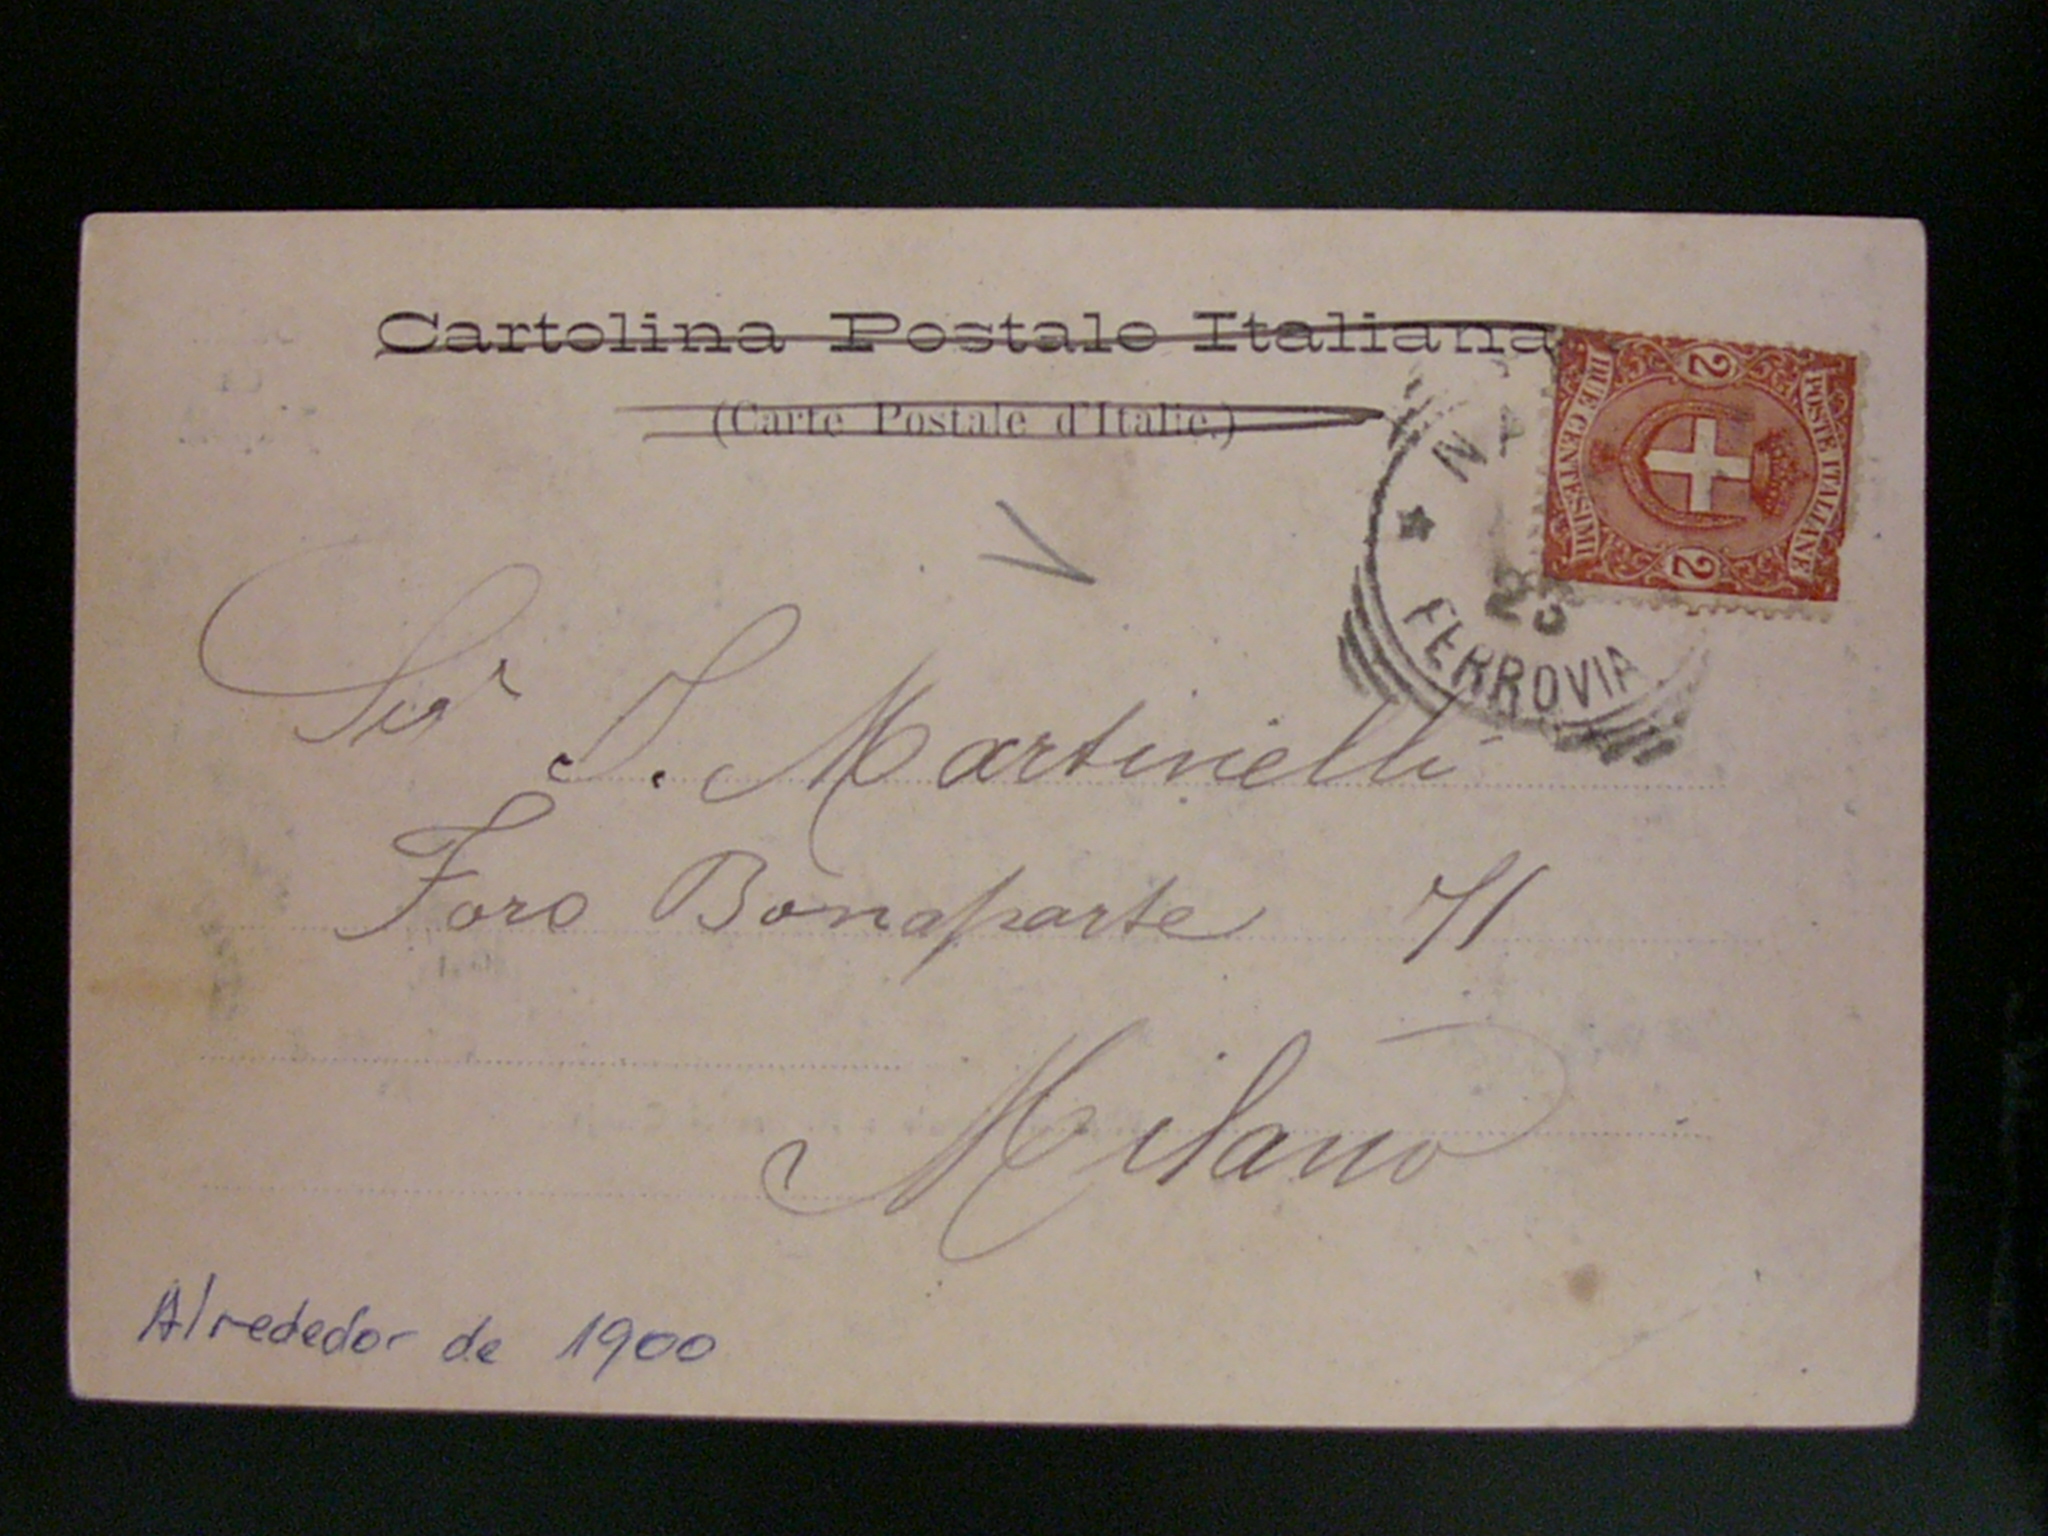 Cartolina Postale Italiana
(Carte Postale d'Italie.)
POSTE ITALIANE
2
2
DUE CENTESIMI
25
FERROVIA
Sigr
S. Martinelli
Foro Bonaparte 71
Milano
Alrededor de 1900